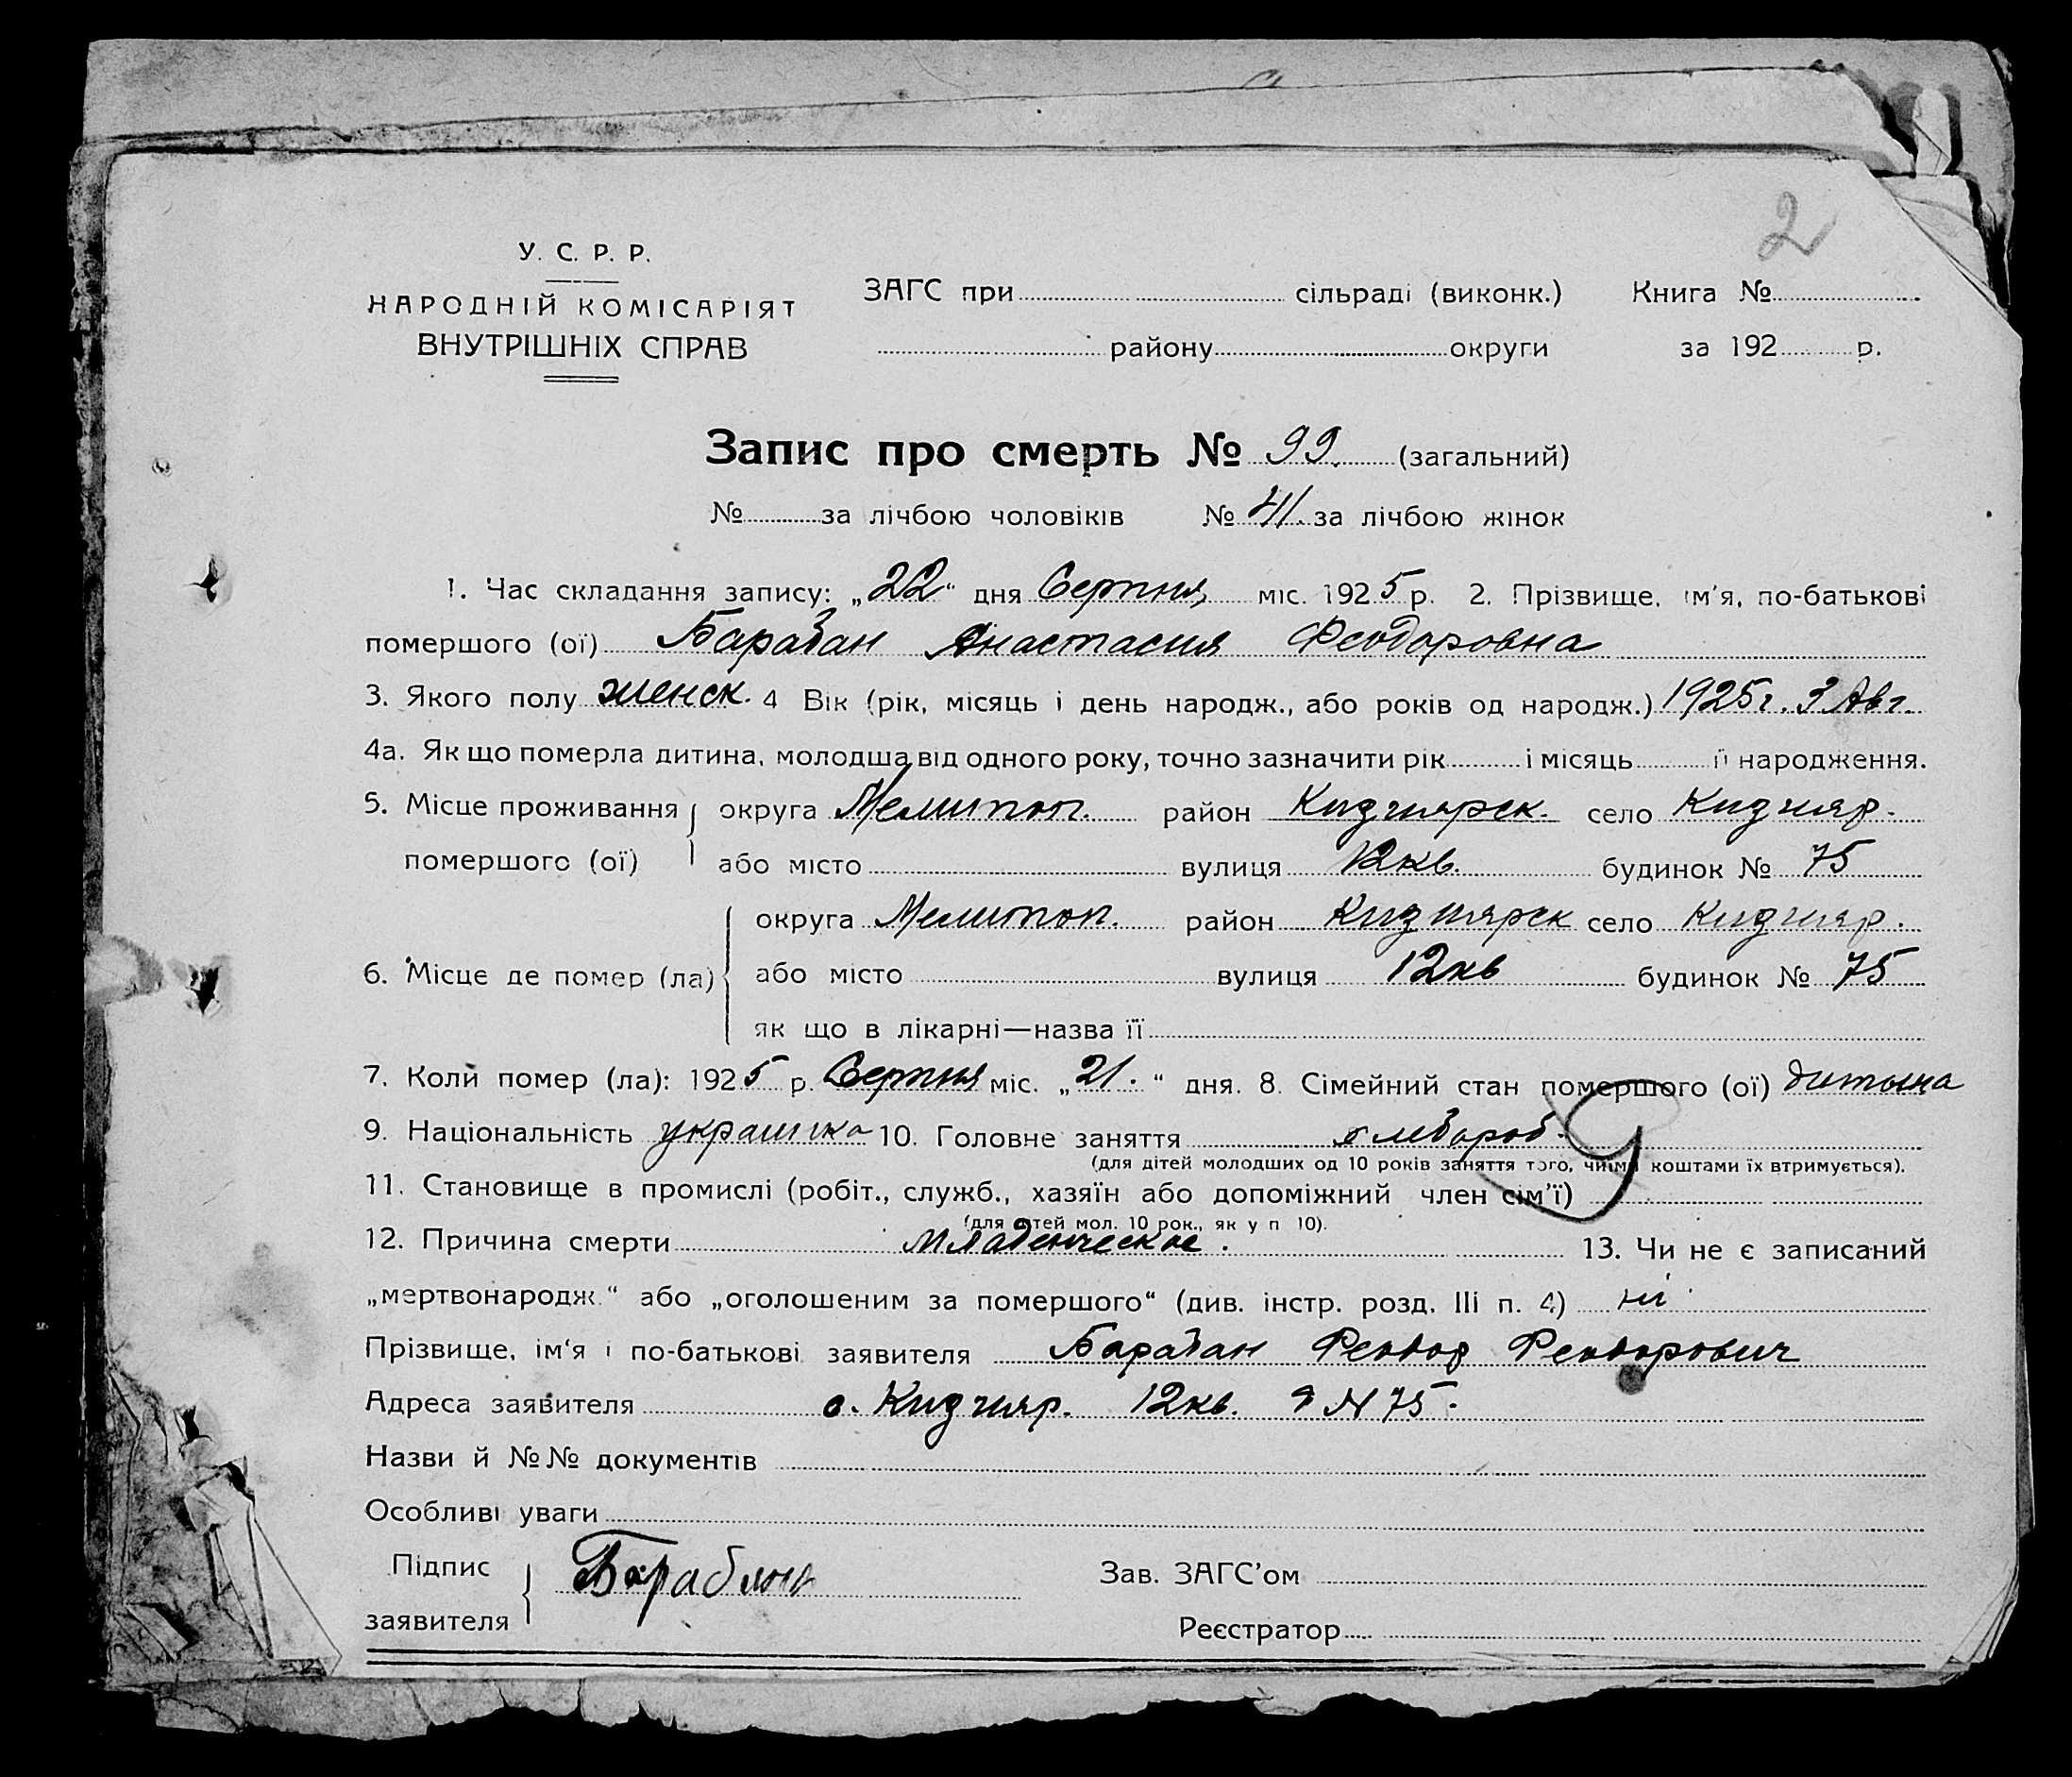 2
У. С. Р. Р.
НАРОДНІЙ КОМІСАРІЯТ
ВНУТРІШНІХ СПРАВ
ЗАГС при сільраді (виконк.) Книга №
району округи за 192 р.
Запис про смерть № 99. (загальний)
№ за лічбою чоловіків № 41. за лічбою жінок
1. Час складання запису: „22“ дня Серпня міс. 1925 р. 2. Прізвище, ім'я, по-батькові
помершого (ої) Барабан Анастасия Феодоровна
3. Якого полу женск. 4 Вік (рік, місяць і день народж., або років од народж.) 1925 г. 3 Авг.
4а. Як що померла дитина, молодша від одного року, точно зазначити рік і місяць її народження.
5. Місце проживання округа Мелитоп. район Кизиярск. село Кизияр.
помершого (ої) або місто вулиця 12 кв. будинок № 75
округа Мелитоп. район Кизиярск село Кизияр.
6. Місце де помер (ла) або місто вулиця 12 кв будинок № 75
як що в лікарні—назва її
7. Коли помер (ла): 1925 р. Серпня міс. „21.“ дня. 8. Сімейний стан помершого (ої) дитына
9. Національність 10. Головне заняття хлебороб.
(для дітей молодших од 10 років заняття того, чиїми коштами їх втримується).
11. Становище в промислі (робіт., служб., хазяїн або допоміжний член сім'ї)
(для дітей мол. 10 рок., як у п 10).
12. Причина смерти младенческое. 13. Чи не є записаний
„мертвонародж.“ або „оголошеним за помершого“ (див. інстр. розд. III п. 4) ні
Прізвище, ім'я і по-батькові заявителя Барабан Феодор Феодорович
Адреса заявителя с. Кизияр. 12 кв. № 75.
Назви й №№ документів
Особливі уваги
Підпис Барабан Зав. ЗАГС'ом
заявителя Реєстратор